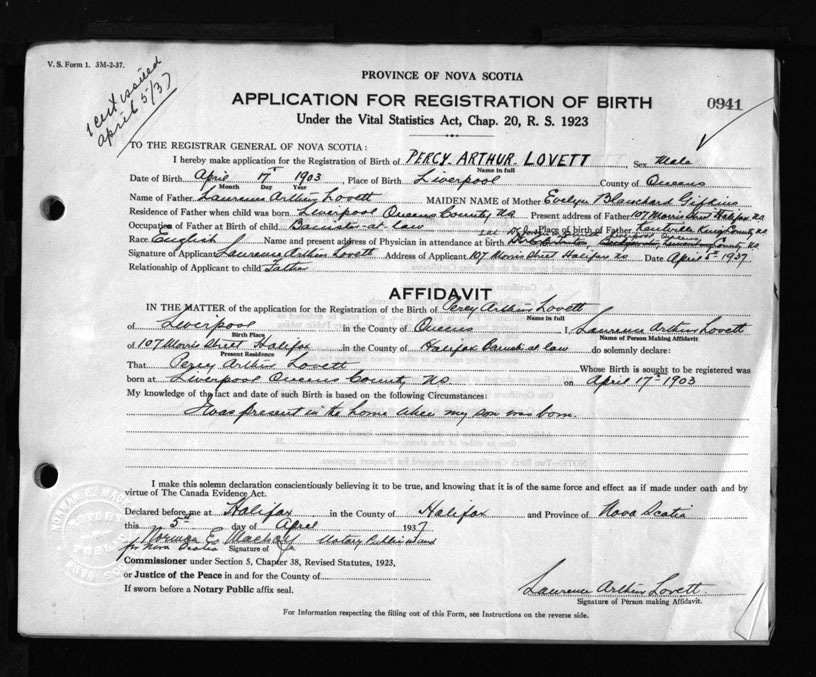 V. S. Form 1. 3M-2-37.
1 cert issued
April 5/37
PROVINCE OF NOVA SCOTIA
APPLICATION FOR REGISTRATION OF BIRTH
0941
Under the Vital Statistics Act, Chap. 20, R. S. 1923
TO THE REGISTRAR GENERAL OF NOVA SCOTIA:
I hereby make application for the Registration of Birth of PERCY ARTHUR LOVETT, Sex Male
Name in full
Date of Birth April 17 1903, Place of Birth Liverpool County of Queens
Month Day Year
Name of Father Laurence Arthur Lovett MAIDEN NAME of Mother Evelyn Blanchard Gifkins
Residence of Father when child was born Liverpool Queens County NS Present address of Father 107 Morris Street Halifax NS
Occupation of Father at Birth of child Barrister-at-law Place of birth of Father Kentville Kings County NS
Race English Name and present address of Physician in attendance at birth County NS
Signature of Applicant Laurence Arthur Lovett Address of Applicant 107 Morris Street Halifax NS Date April 5th 1937
Relationship of Applicant to child Father
AFFIDAVIT
IN THE MATTER of the application for the Registration of the Birth of Percy Arthur Lovett
Name in full
of Liverpool in the County of Queens I, Laurence Arthur Lovett
Birth Place Name of Person making Affidavit
of 107 Morris Street Halifax in the County of Halifax Barrister at law do solemnly declare:
Present Residence
That Percy Arthur Lovett Whose Birth is sought to be registered was
born at Liverpool Queens County NS on April 17th 1903
My knowledge of the fact and date of such Birth is based on the following Circumstances:
I was present in the home when my son was born.
I make this solemn declaration conscientiously believing it to be true, and knowing that it is of the same force and effect as if made under oath and by
virtue of The Canada Evidence Act.
Declared before me at Halifax in the County of Halifax and Province of Nova Scotia
this 5th day of April 1937
Norman E. Mackay Notary Public in and
for Nova Scotia Signature of
Commissioner under Section 5, Chapter 38, Revised Statutes, 1923,
or Justice of the Peace in and for the County of
Laurence Arthur Lovett
If sworn before a Notary Public affix seal.
Signature of Person making Affidavit.
For Information respecting the filling out of this Form, see Instructions on the reverse side.